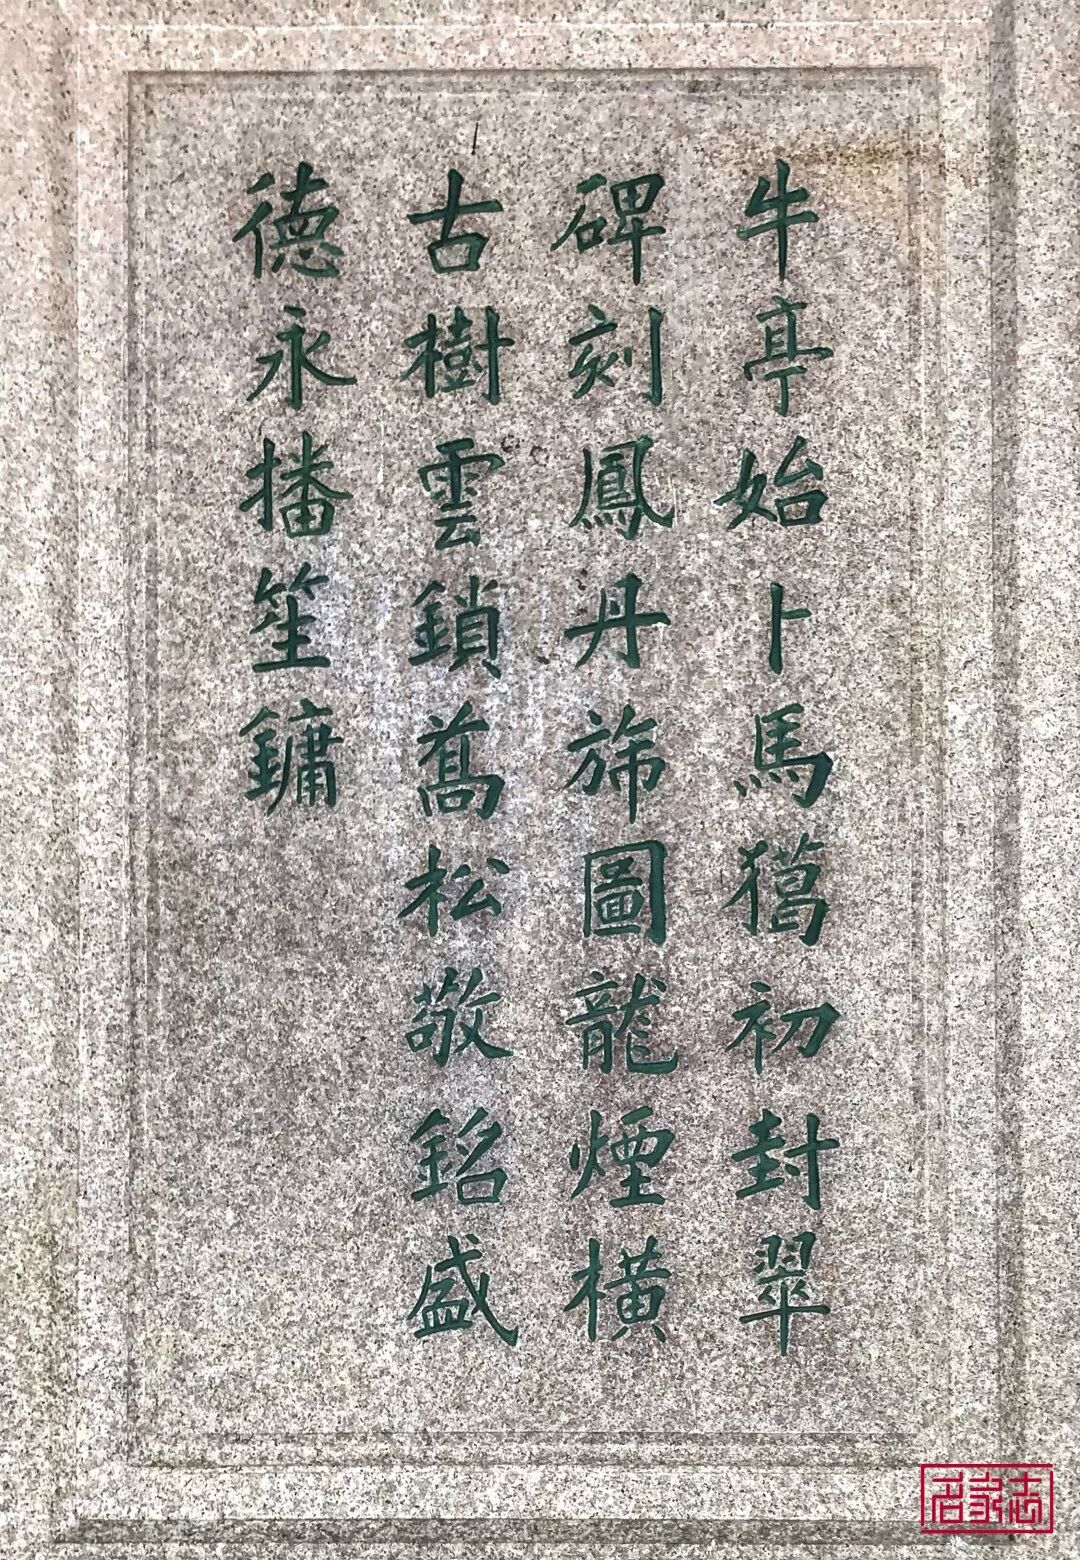 牛亭始卜馬獦初封翠
碑刻鳳丹旆圖龍煙橫
古樹雲鎖蒿松敬銘盛
德永播笙鏞